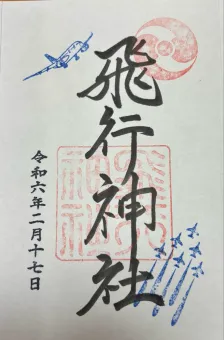 飛行神社
令和六年二月十七日